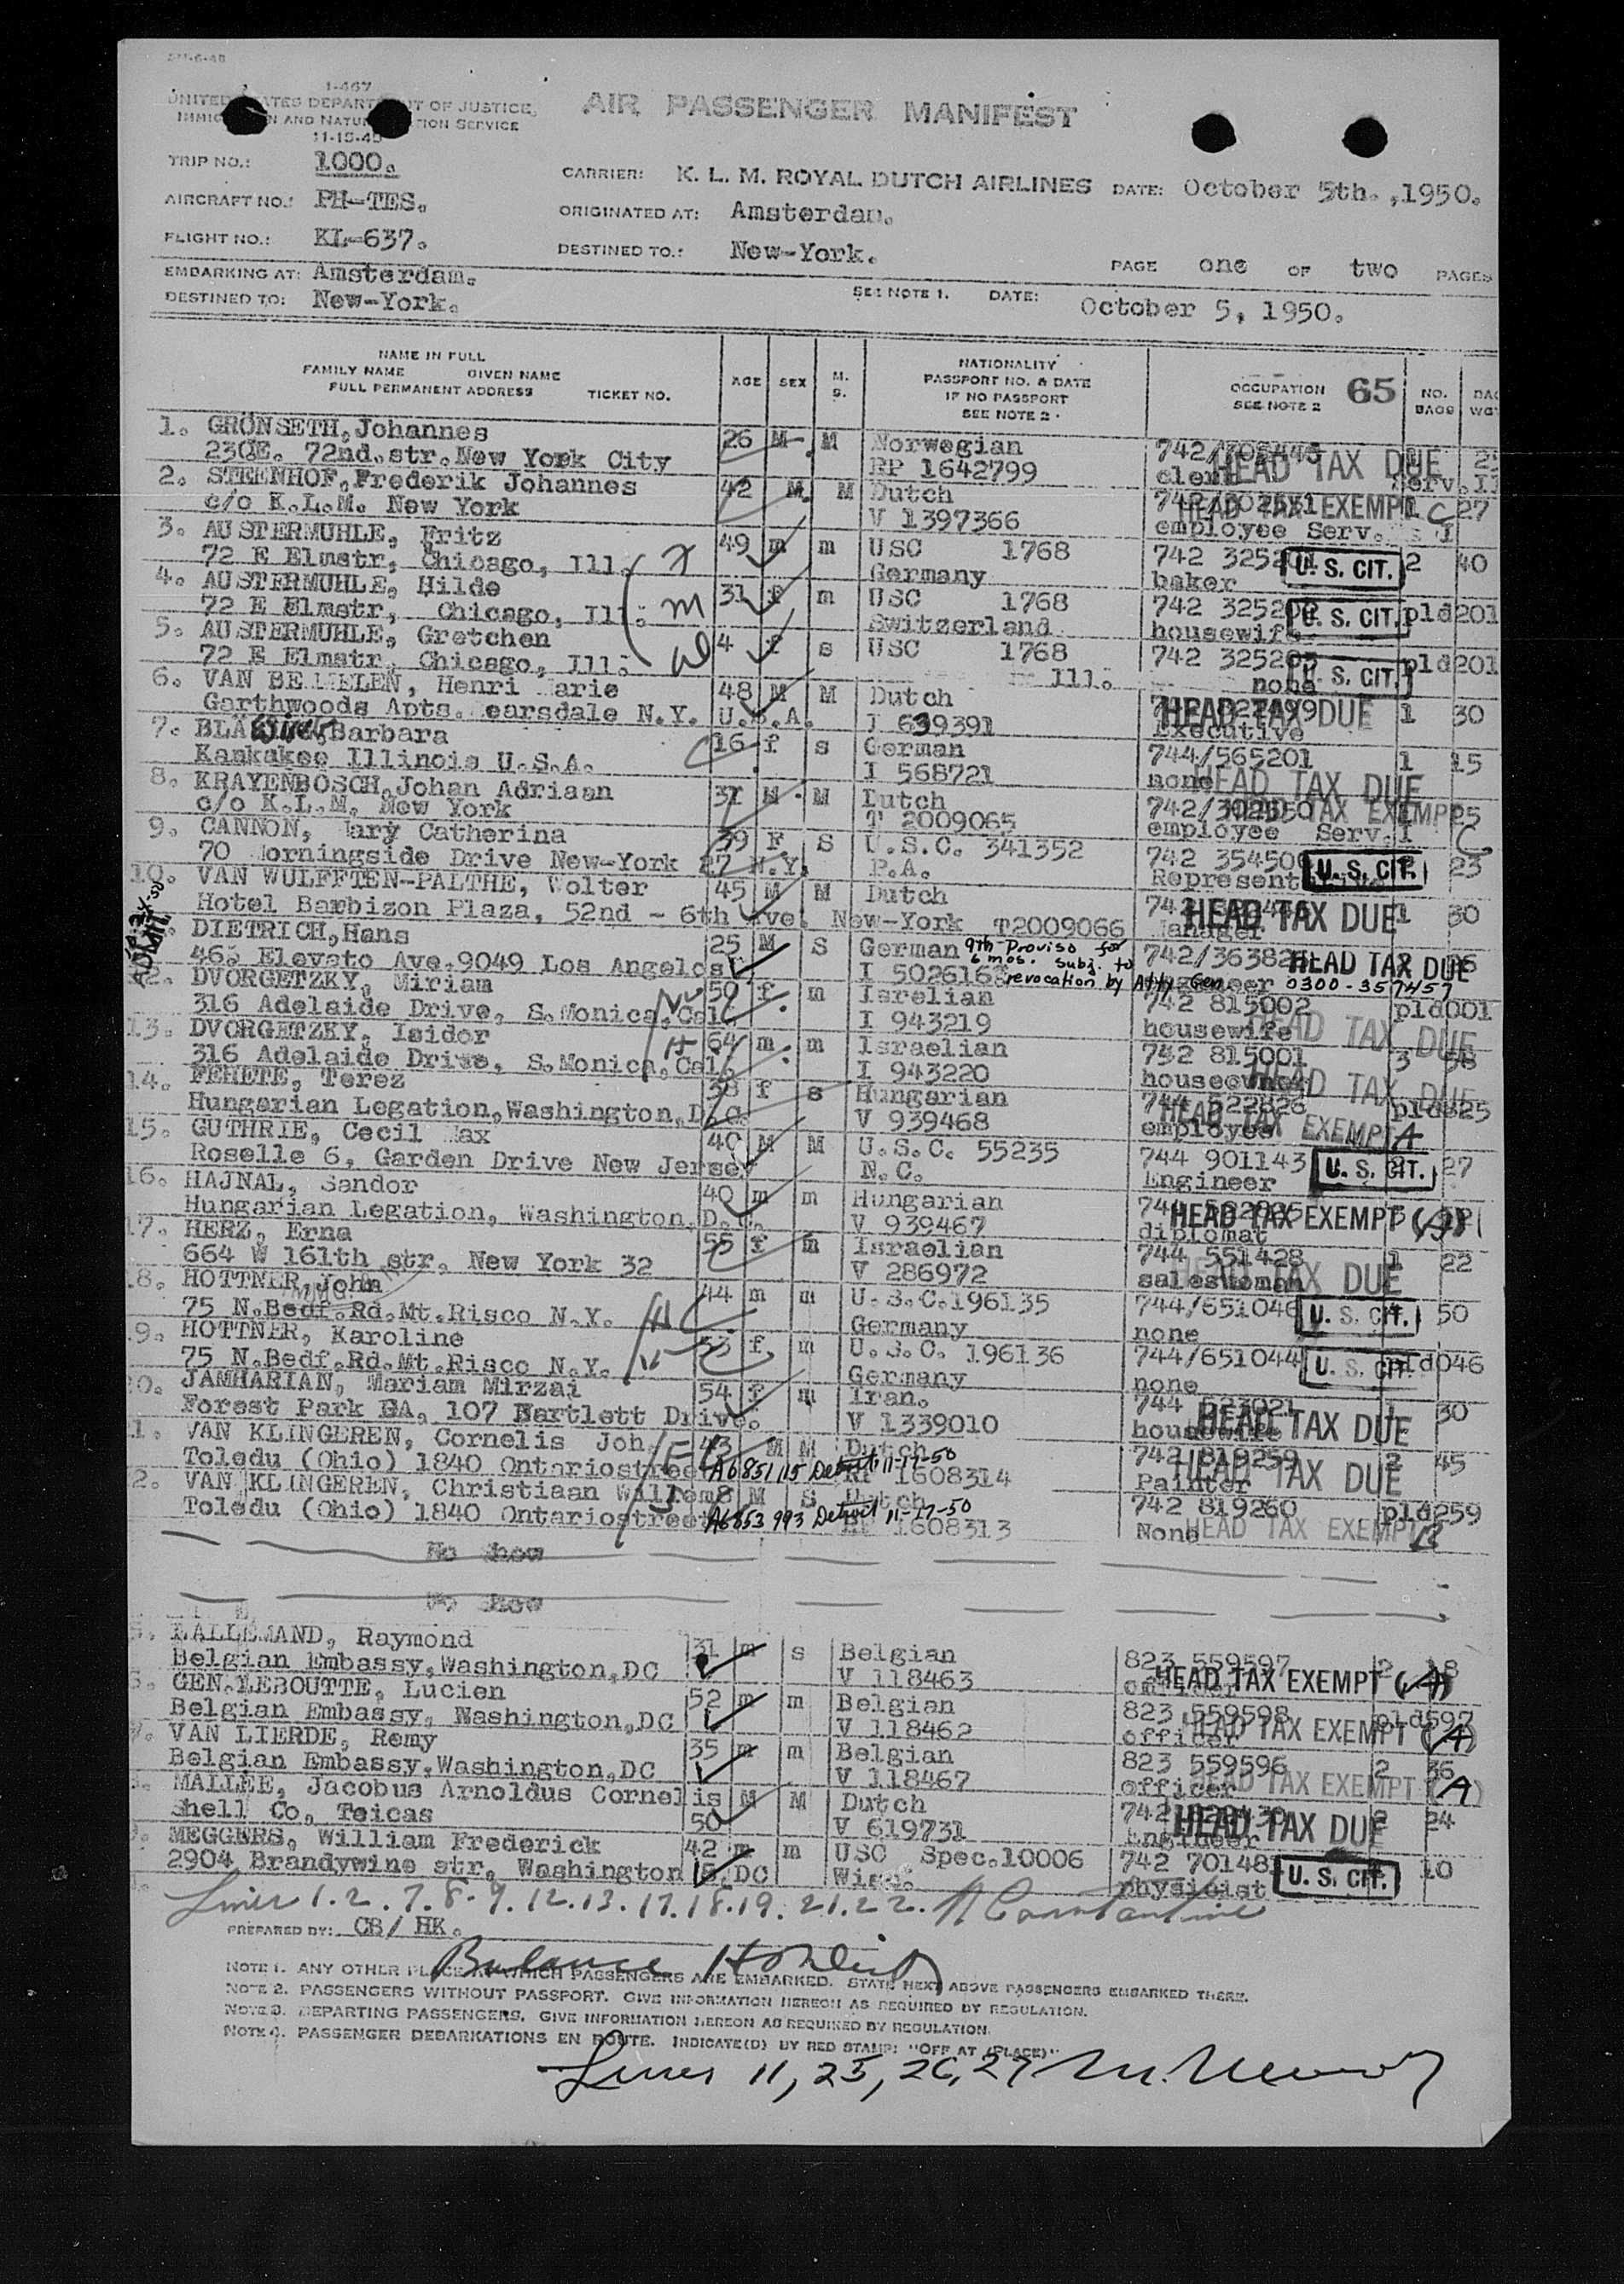 I-467
UNITED STATES DEPARTMENT OF JUSTICE,
IMMIGRATION AND NATURALIZATION SERVICE
11-15-45
AIR PASSENGER MANIFEST
TRIP NO.: 1000.
CARRIER: K. L. M. ROYAL DUTCH AIRLINES DATE: October 5th.,1950.
AIRCRAFT NO.: PH-TES.
ORIGINATED AT: Amsterdam.
FLIGHT NO.: KL-637.
DESTINED TO.: New-York.
PAGE one OF two PAGES
EMBARKING AT: Amsterdam.
DESTINED TO: New-York.
SEE NOTE 1. DATE: October 5, 1950.
NAME IN FULL
FAMILY NAME GIVEN NAME
FULL PERMANENT ADDRESS TICKET NO.
AGE SEX M. S.
NATIONALITY
PASSPORT NO. & DATE
IF NO PASSPORT
SEE NOTE 2
OCCUPATION 65
SEE NOTE 2
NO. BAGS
1. GRÖNSETH, Johannes 26 M M Norwegian
230E. 72nd.str.New York City RP 1642799 clerk HEAD TAX DUE
2. STEENHOF, Frederik Johannes 42 M M Dutch
c/o K.L.M. New York V 1397366 employee Serv. HEAD TAX EXEMPT C 27
3. AUSTERMUHLE, Fritz 49 m m USC 1768
72 E Elmstr, Chicago, Ill. Germany baker U. S. CIT. 2 40
4. AUSTERMUHLE, Hilde 31 f m USC 1768
72 E Elmstr, Chicago, Ill. m Switzerland housewife U. S. CIT. pld201
5. AUSTERMUHLE, Gretchen 4 f s USC 1768 742 325203
72 E Elmstr, Chicago, Ill. Ill. none U. S. CIT. pld201
6. Henri Marie 48 M M Dutch
Garthwoods Apts. N.Y. U.S.A. I 639391 Executive HEAD TAX DUE 1 30
7. Barbara 16 f s German 744/565201 1 15
Kankakee Illinois U.S.A. I 568721 none HEAD TAX DUE
8. KRAYENBOSCH, Johan Adriaan M M Dutch 742/302550
c/o K.L.M. New York T 2009065 employee Serv. HEAD TAX EXEMPT C
9. CANNON, Mary Catherina 39 F S U.S.C. 341352
70 Morningside Drive New-York 27 N.Y. P.A. U.S. CIT. 23
10. VAN WULFFTEN-PALTHE, Wolter 45 M M Dutch
Hotel Barbizon Plaza, 52nd - 6th Ave. New-York T2009066 Manager HEAD TAX DUE 1 30
DIETRICH, Hans 25 M S German 9th Proviso for 6 mos. subj. to revocation by Atty Gen
465 Elevato Ave.9049 Los Angelos HEAD TAX DUE
12. DVORGETZKY, Miriam 50 f m Isrelian 742 815002 pld001
316 Adelaide Drive, S.Monica, Cal. I 943219 housewife HEAD TAX DUE
13. DVORGETZKY, Isidor 64 m m Israelian 742 815001 3
316 Adelaide Drive, S.Monica, Cal. I 943220 HEAD TAX DUE
14. FEHETE, Terez 38 f s Hungarian 744 522826 pld825
Hungarian Legation, Washington, D.C. V 939468 employee HEAD TAX EXEMPT A
15. GUTHRIE, Cecil Max 40 M M U.S.C. 55235 744 901143
Roselle 6, Garden Drive New Jersey N.C. Engineer U. S. CIT. 27
16. HAJNAL, Sandor 40 m m Hungarian
Hungarian Legation, Washington, D.C. V 939467 diplomat HEAD TAX EXEMPT (A)
17. HERZ, Erna 55 f m Israelian 744 551428 1 22
664 W 161th str. New York 32 V 286972 saleswoman HEAD TAX DUE
18. HOTTNER, John 44 m m U.S.C.196135 744/651046 U. S. CIT. 50
75 N.Bedf.Rd.Mt.Risco N.Y. Germany none
19. HOTTNER, Karoline 53 f m U.S.C. 196136 744/651044 U. S. CIT. pld046
75 N.Bedf.Rd.Mt.Risco N.Y. Germany none
20. JAMHARIAN, Mariam Mirzai 54 f m Iran. 744 523021 1 30
Forest Park GA, 107 Bartlett Drive. V 1339010 housewife HEAD TAX DUE
21. VAN KLINGEREN, Cornelis Joh. 43 M M Dutch 742 819259 2 45
Toledu (Ohio) 1840 Ontariostreet A6851115 Detroit 11-17-50 1608314 Painter HEAD TAX DUE
22. VAN KLINGEREN, Christiaan Willem 8 M S Dutch 742 819260 pld259
Toledu (Ohio) 1840 Ontariostreet A6853993 Detroit 11-17-50 1608313 None HEAD TAX EXEMPT
No Show
No Show
LALLEMAND, Raymond 31 m s Belgian 823 559597 2 18
Belgian Embassy, Washington, DC V 118463 HEAD TAX EXEMPT (A)
GEN. LEBOUTTE, Lucien 52 m m Belgian 823 559598 pld597
Belgian Embassy, Washington, DC V 118462 officer HEAD TAX EXEMPT (A)
VAN LIERDE, Remy 35 m m Belgian 823 559596 2 36
Belgian Embassy, Washington, DC V 118467 officer HEAD TAX EXEMPT (A)
MALLEE, Jacobus Arnoldus Cornelis M M Dutch 2 24
Shell Co, Teicas 50 V 619731 Engineer HEAD TAX DUE
MEGGERS, William Frederick 42 m m USC Spec.10006 U. S. CIT. 10
2904 Brandywine str, Washington 15, DC Wisc. physicist
Lines 1. 2. 7. 8. 9. 12. 13. 17. 18. 19. 21. 22. Constantine
PREPARED BY: CB/ HK.
Balance
NOTE 1. ANY OTHER PLACE AT WHICH PASSENGERS ARE EMBARKED. STATE NEXT ABOVE PASSENGERS EMBARKED THERE.
NOTE 2. PASSENGERS WITHOUT PASSPORT. GIVE INFORMATION HEREON AS REQUIRED BY REGULATION.
NOTE 3. DEPARTING PASSENGERS. GIVE INFORMATION HEREON AS REQUIRED BY REGULATION.
NOTE 4. PASSENGER DEBARKATIONS EN ROUTE. INDICATE(D) BY RED STAMP: "OFF AT (PLACE)"
Lines 11, 25, 26, 27